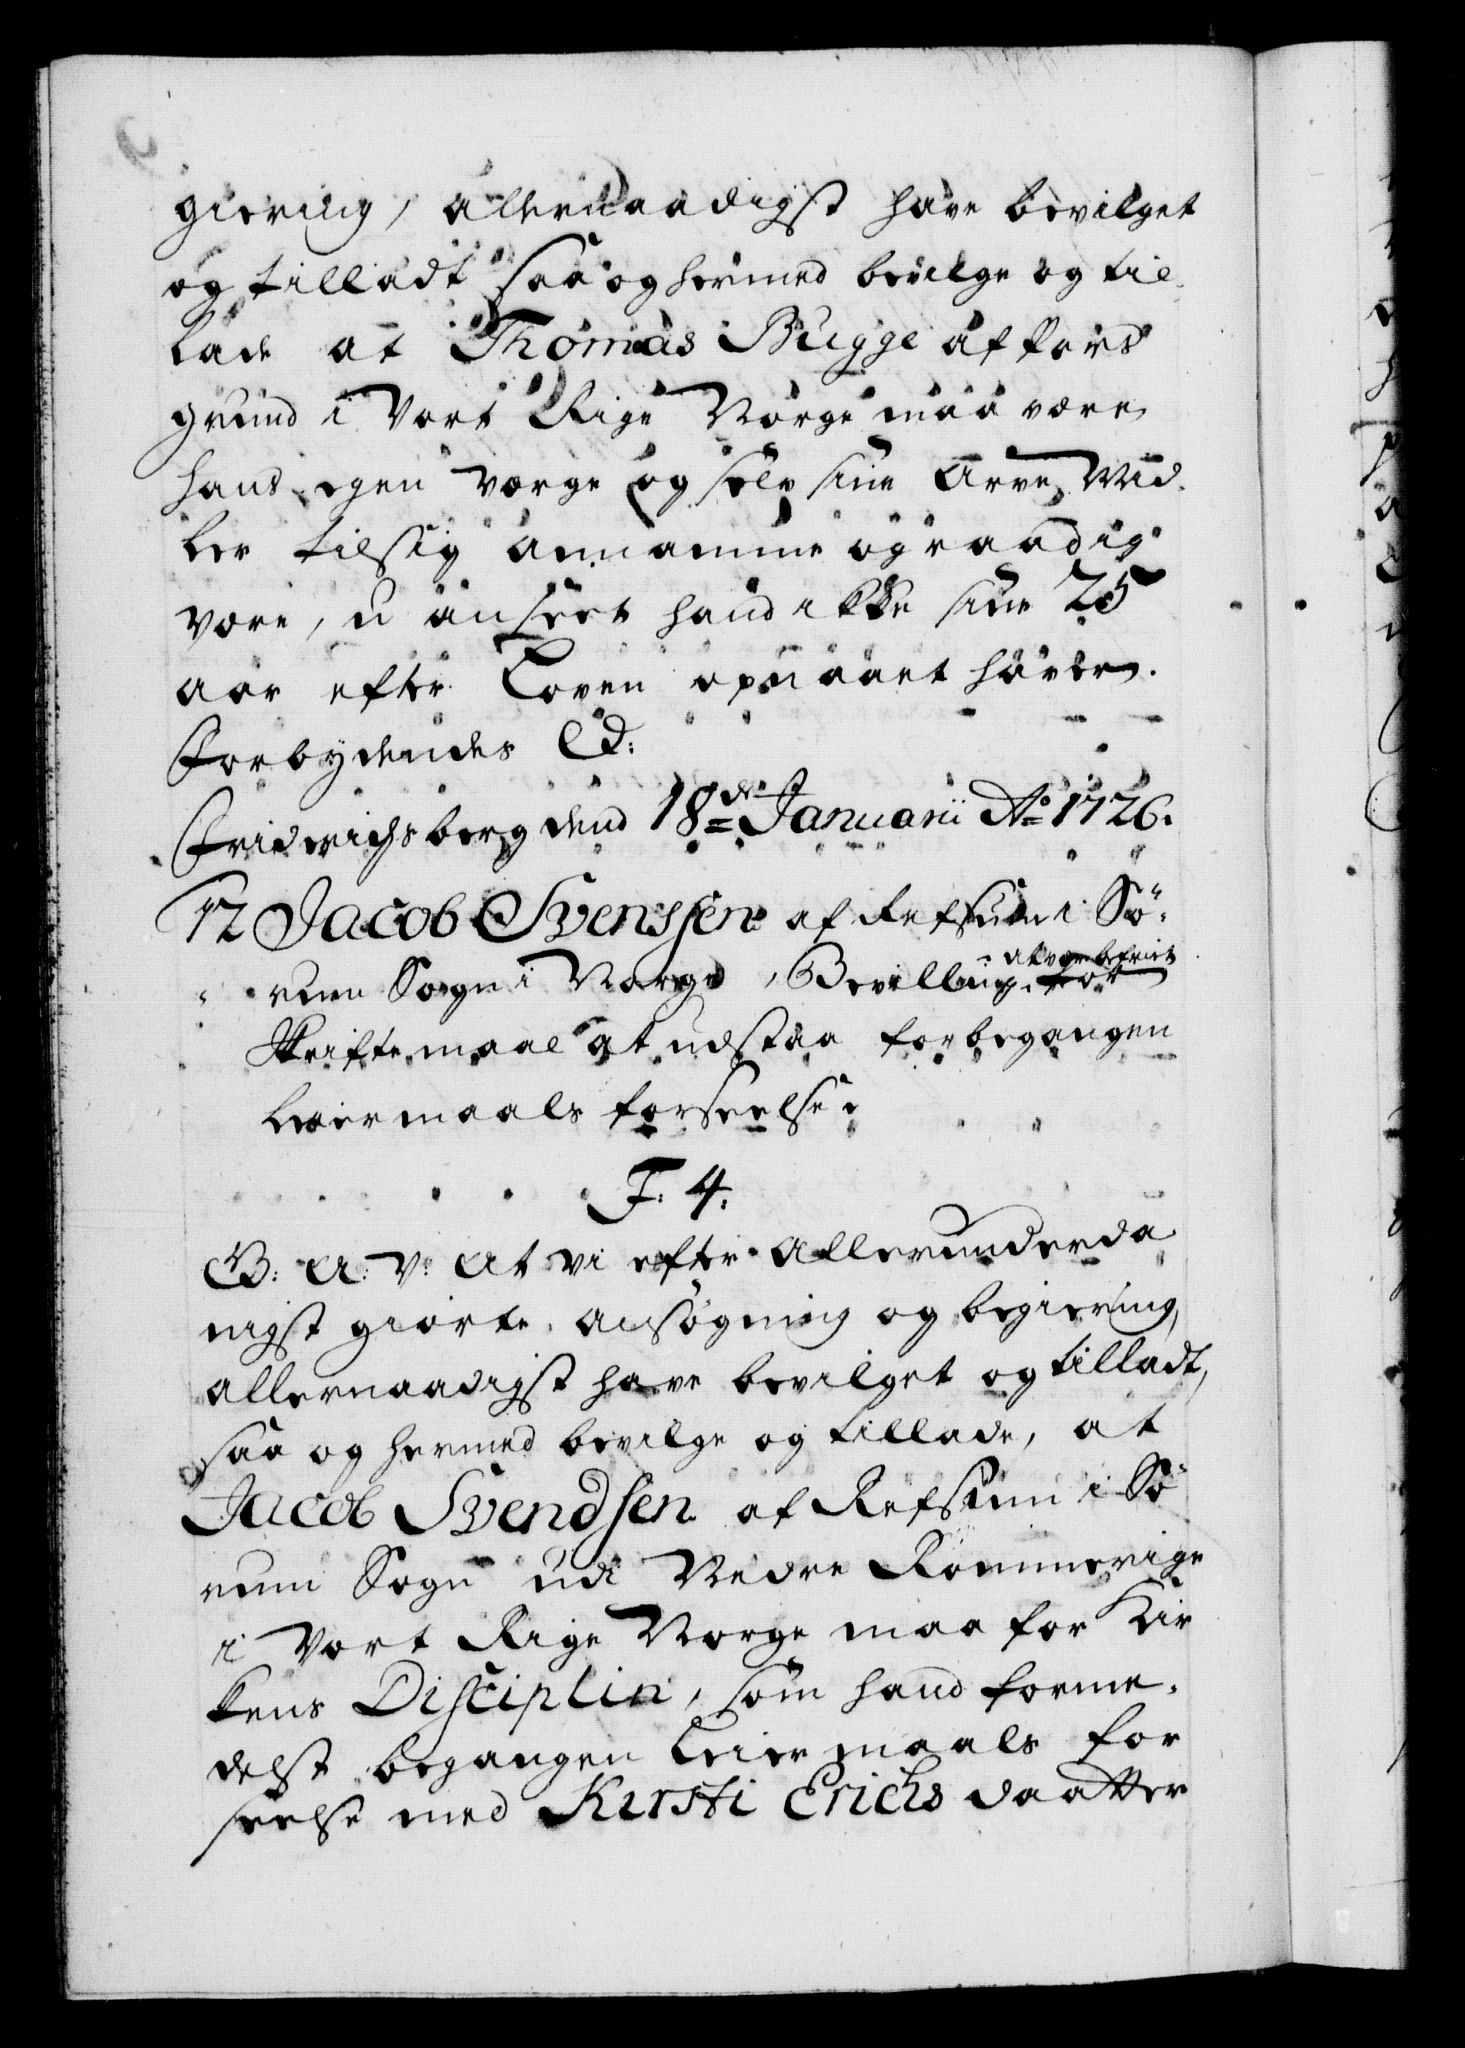 giering, allernaadigst have bevilget
og tilladt saa og hermed bevilge og til
lade at Thomas Bugge af Pors
grund i Vort Rige Norge maa være
hans egen værge og selv sine Arve Mid
ler til sig annamme og raadig
være, u anseet hand ikke sine 25
aar efter Loven opnaaet haver.
Forbydendes &:
Friderichsberg dend 18de Januarii Ao 1726.
12 Jacob Svenssen af Refsum i Sö
rum Sogn i Norge, Bevilling at være befriet for
Skriftemaal at udstaa for begangen
Leiermaals forseelse
F: 4:
G: A: V: At vi efter allerunderda
nigst giorte ansøgning og begiering,
allernaadigst have bevilget og tilladt,
saa og hermed bevilge og tillade, at
Jacob Svendsen af Refsum i Sö
rum Sogn udi Nedre Rommerige
i Vort Rige Norge maa for Kir
kens Disciplin, som hand forme
delst begangen Leiermaals for
seelse med Kirsti Erichs daatter